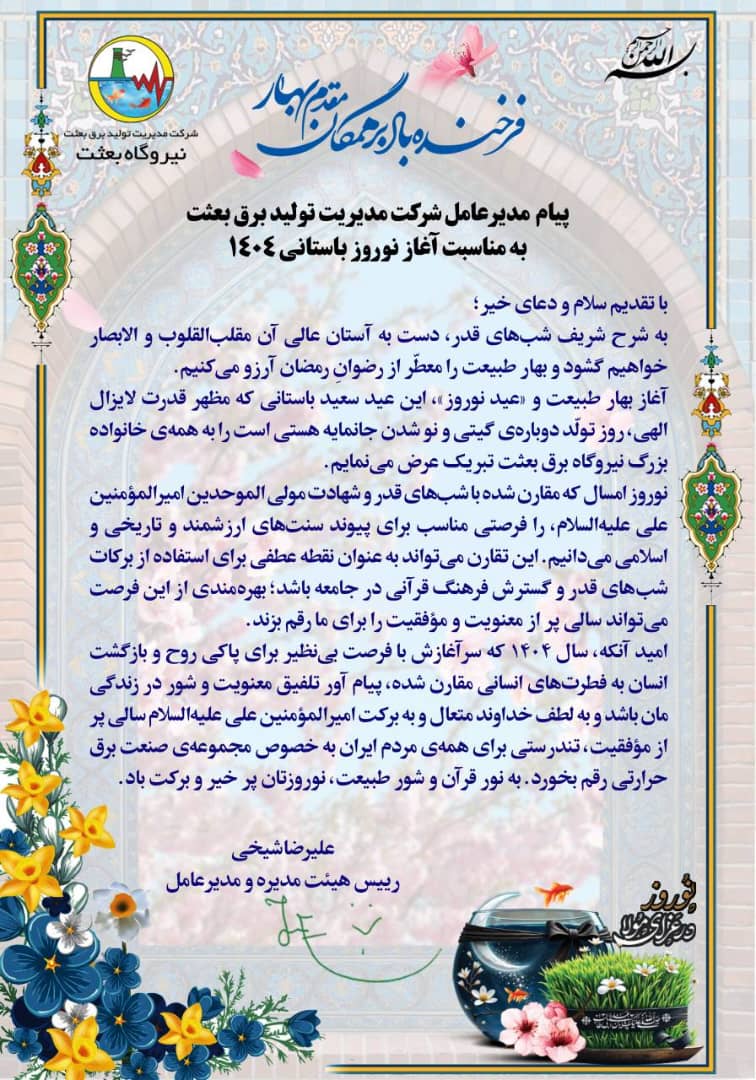 بسم الله الرحمن الرحیم
فرخنده باد بر همگان مقدم بهار
شرکت مدیریت تولید برق بعثت
نیروگاه بعثت
پیام مدیرعامل شرکت مدیریت تولید برق بعثت
به مناسبت آغاز نوروز باستانی ۱۴۰۴
با تقدیم سلام و دعای خیر؛
به شرح شریف شب‌های قدر، دست به آستان عالی آن مقلب‌القلوب و الابصار
خواهیم گشود و بهار طبیعت را معطّر از رضوانِ رمضان آرزو می‌کنیم.
آغاز بهار طبیعت و «عید نوروز»، این عید سعید باستانی که مظهر قدرت لایزال
الهی، روز تولّد دوباره‌ی گیتی و نو شدن جانمایه هستی است را به همه‌ی خانواده
بزرگ نیروگاه برق بعثت تبریک عرض می‌نمایم.
نوروز امسال که مقارن شده با شب‌های قدر و شهادت مولی الموحدین امیرالمؤمنین
علی علیه‌السلام، را فرصتی مناسب برای پیوند سنت‌های ارزشمند و تاریخی و
اسلامی می‌دانیم. این تقارن می‌تواند به عنوان نقطه عطفی برای استفاده از برکات
شب‌های قدر و گسترش فرهنگ قرآنی در جامعه باشد؛ بهره‌مندی از این فرصت
می‌تواند سالی پر از معنویت و مؤفقیت را برای ما رقم بزند.
امید آنکه، سال ۱۴۰۴ که سرآغازش با فرصت بی‌نظیر برای پاکی روح و بازگشت
انسان به فطرت‌های انسانی مقارن شده، پیام آور تلفیق معنویت و شور در زندگی
مان باشد و به لطف خداوند متعال و به برکت امیرالمؤمنین علی علیه‌السلام سالی پر
از مؤفقیت، تندرستی برای همه‌ی مردم ایران به خصوص مجموعه‌ی صنعت برق
حرارتی رقم بخورد. به نور قرآن و شور طبیعت، نوروزتان پر خیر و برکت باد.
علیرضا شیخی
رییس هیئت مدیره و مدیرعامل
نوروز
در عزای مولا